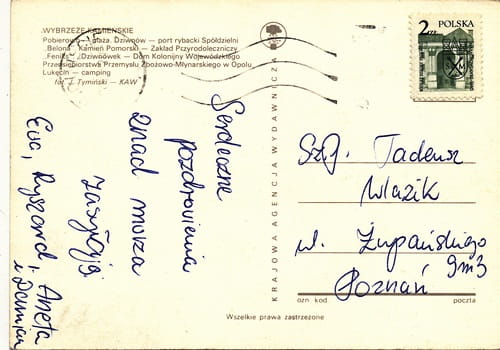 WYBRZEŻE KAMIEŃSKIE
Pobierowo — plaża. Dziwnów — port rybacki Spółdzielni
„Belona". Kamień Pomorski — Zakład Przyrodoleczniczy
„Feniks". Dziwnówek — Dom Kolonijny Wojewódzkiego
Przedsiębiorstwa Przemysłu Zbożowo-Młynarskiego w Opolu
Łukęcin — camping
fot. J. Tymiński — KAW
Serdeczne
pozdrowienia
znad morza
zasyłają
Ewa, Ryszard, Aneta
i Damian
KRAJOWA AGENCJA WYDAWNICZA
2 zł POLSKA
Sz.P. Tadeusz
Wlazik
ul. Żupańskiego
9m3
Poznań
ozn kod
poczta
Wszelkie prawa zastrzeżone